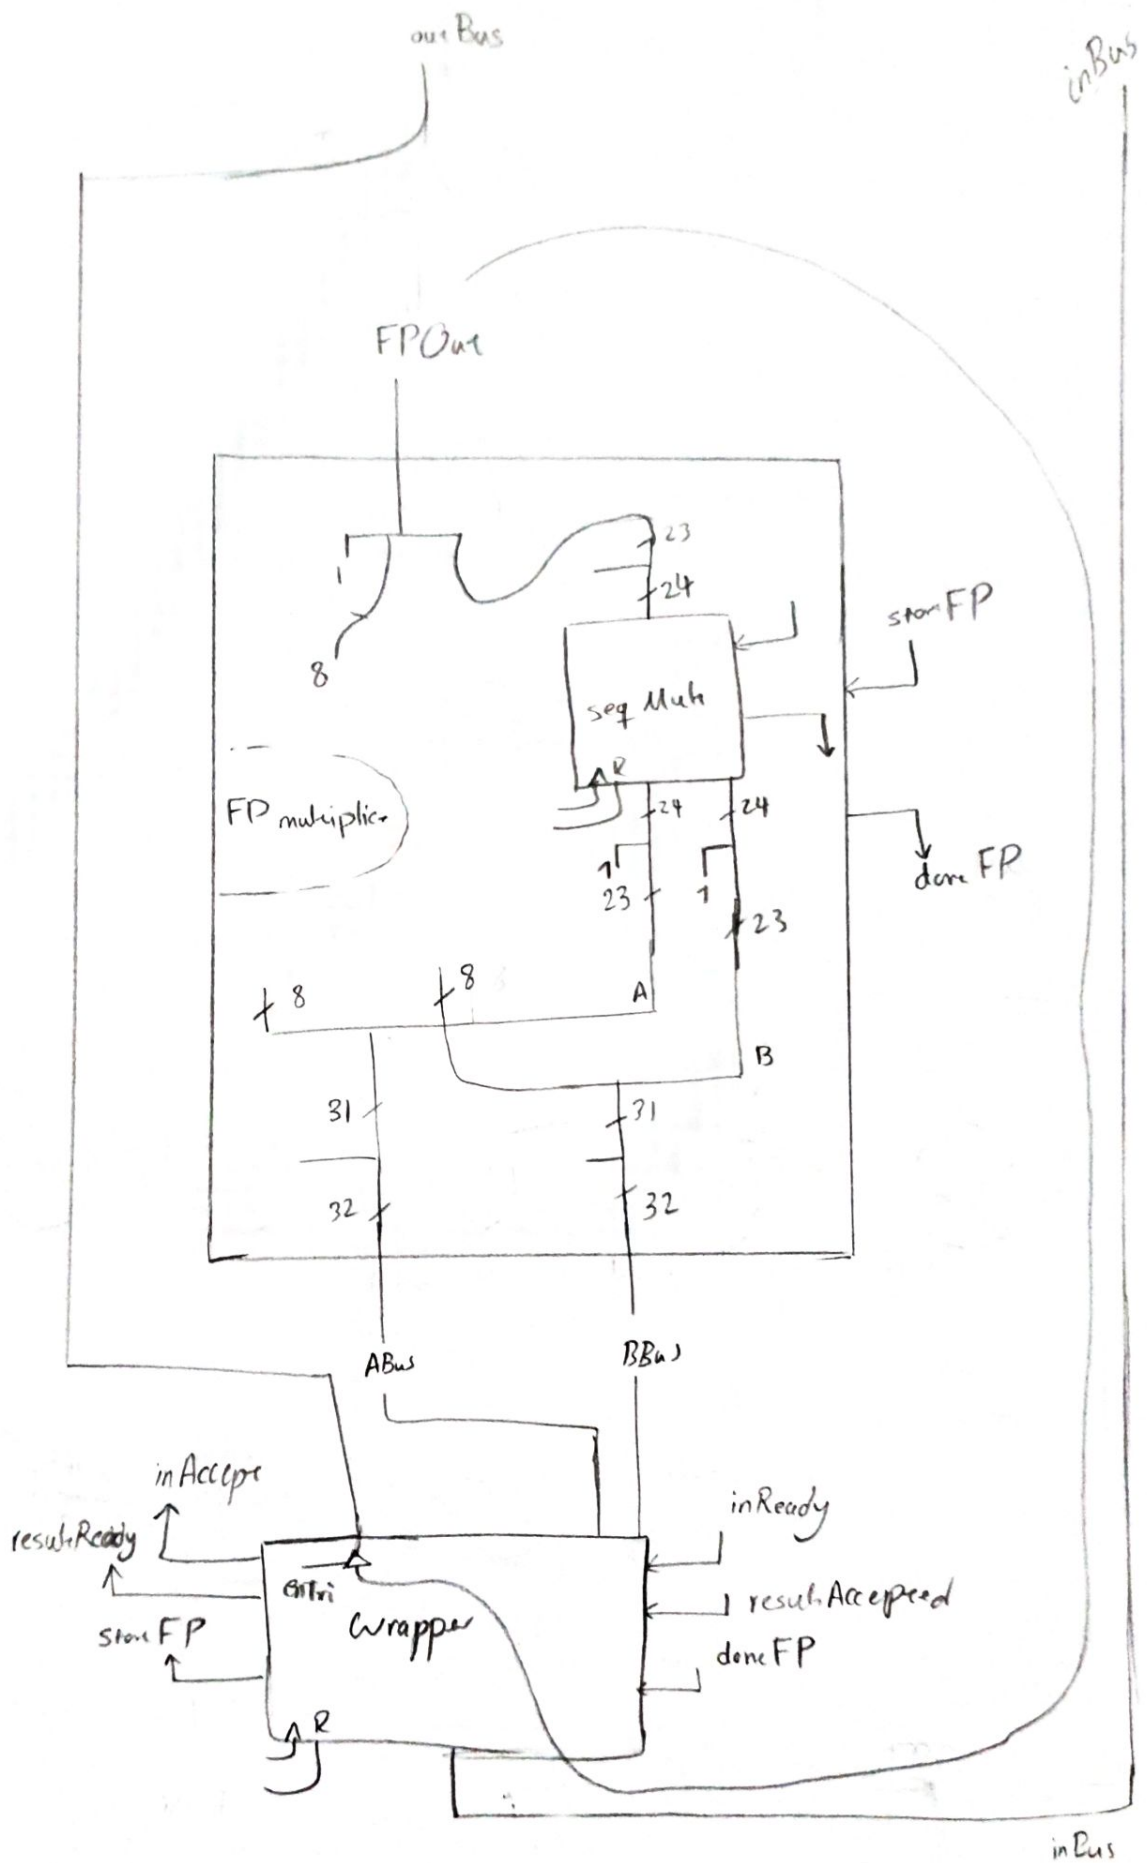 outBus
inBus
FPOut
23
24
1
8
startFP
seq Mult
R
FP multiplier
24
24
1
23
1
23
doneFP
8
8
A
B
31
31
32
32
ABus
BBus
inAccept
resultReady
startFP
inReady
resultAccepted
doneFP
enTri
Wrapper
R
inBus